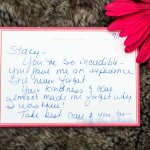 Stacy-
You're so incredible-
you gave me an experience
I'll never forget.
Your kindness & care
almost made me forget why
I was there!
Take best care & you too-